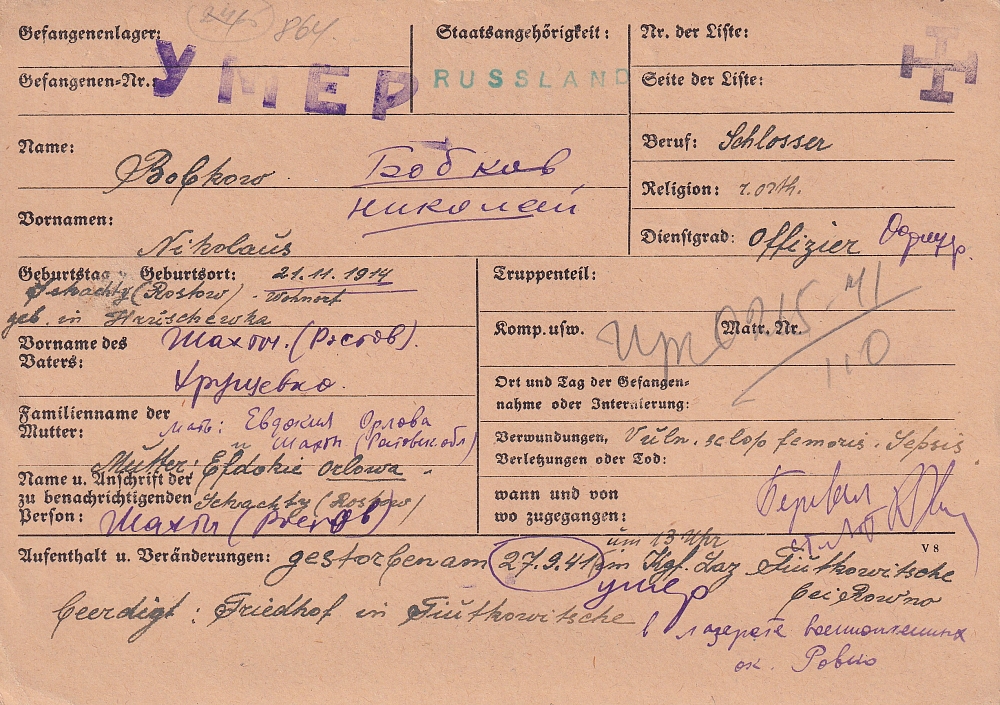 864.
Gefangenenlager:
Staatsangehörigkeit:
Nr. der Liste:
УМЕР
RUSSLAND
Gefangenen-Nr.:
Seite der Liste:
Name: Bobkow Бобков
Beruf: Schlosser
Николай
Religion: r. orth.
Vornamen: Nikolaus
Dienstgrad: Offizier Офицер.
Geburtstag u. Geburtsort: 21.11.1914
Schachty (Rostow) - Wohnort
geb. in
Truppenteil:
Vorname des Vaters: Шахты. (Ростов).
Хрущевка.
Komp. usw.
Matr. Nr.
0215-41
110
Ort und Tag der Gefangen-
nahme oder Internierung:
Familienname der Mutter: Мать: Евдокия Орлова
Шахты (Ростовск обл)
Mutter: Efdokie Orlowa
Verwundungen, Verletzungen oder Tod: Vuln. sclop femoris. Sepsis
Name u. Anschrift der zu benachrichtigenden Person: Schachty (Rostow)
Шахты (Ростов)
wann und von
wo zugegangen:
V 8
um 13 Uhr
Aufenthalt u. Veränderungen: gestorben am 27.9.41 im Kgf. Laz Tiutkowitsche
умер
bei Rowno
beerdigt: Friedhof in Tiutkowitsche
в лазарете военнопленных
ок. Ровно